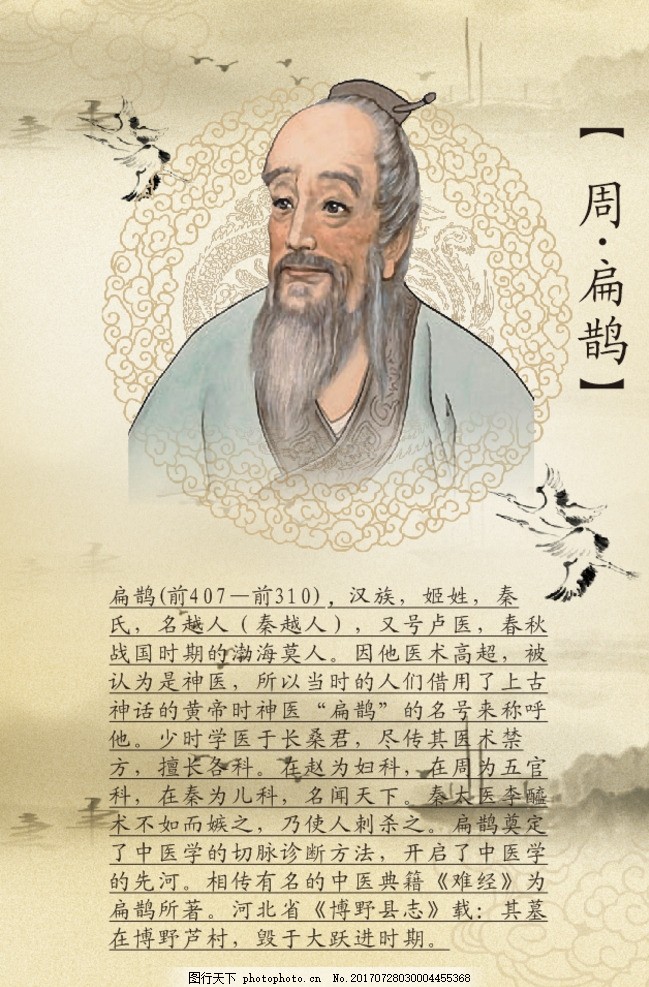 【周·扁鹊】
扁鹊(前407—前310)，汉族，姬姓，秦
氏，名越人（秦越人），又号卢医，春秋
战国时期的渤海莫人。因他医术高超，被
认为是神医，所以当时的人们借用了上古
神话的黄帝时神医“扁鹊”的名号来称呼
他。少时学医于长桑君，尽传其医术禁
方，擅长各科。在赵为妇科，在周为五官
科，在秦为儿科，名闻天下。秦太医李醯
术不如而嫉之，乃使人刺杀之。扁鹊奠定
了中医学的切脉诊断方法，开启了中医学
的先河。相传有名的中医典籍《难经》为
扁鹊所著。河北省《博野县志》载：其墓
在博野芦村，毁于大跃进时期。
图行天下 photophoto.cn No.20170728030004455368